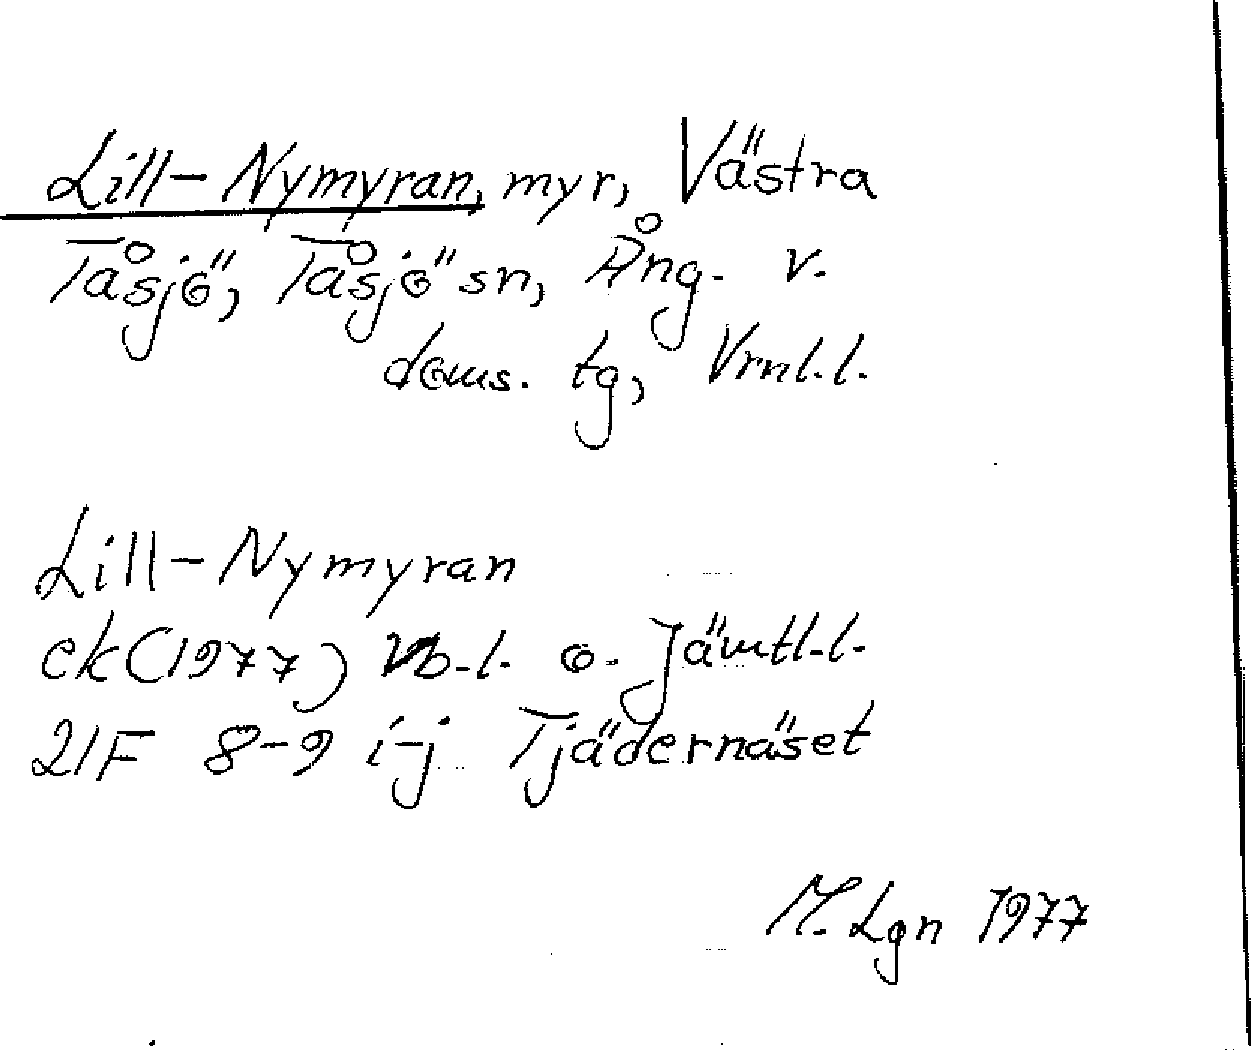 Lill-Nymyran, myr, Västra
Tåsjö, Tåsjö sn, Ång. v.
doms. tg, Vrnl.l.
Lill-Nymyran
ek (1977) Vb.l. o. Jämtl.l.
21F 8-9 i-j Tjädernäset
M. Lgn 1977